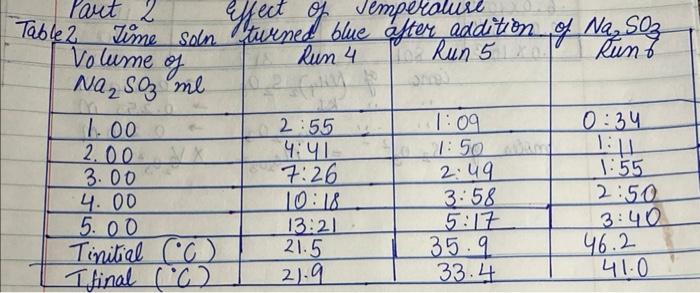 Part 2 Effect of Temperature
Table 2 Time soln turned blue after addition of Na2SO3
Volume of Na2SO3 ml Run 4 Run 5 Run 6
1.00 2:55 1:09 0:34
2.00 4:41 1:50 1:11
3.00 7:26 2:49 1:55
4.00 10:18 3:58 2:50
5.00 13:21 5:17 3:40
Tinitial (°C) 21.5 35.9 46.2
Tfinal (°C) 21.9 33.4 41.0